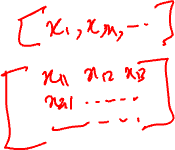 [x₁, x₂, ...]
[x₁₁ x₁₂ x₁₃
x₂₁ ......
......]